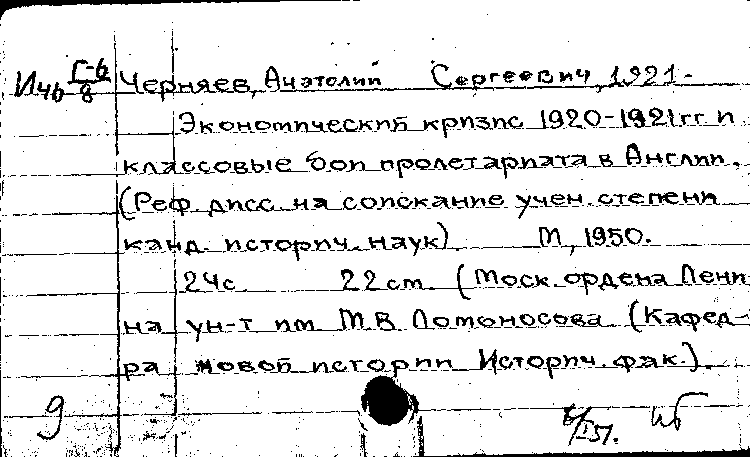 Ич6 Г-6/8 Черняев, Анатолий Сергеевич, 1921-
Экономический кризис 1920-1921гг и
классовые бои пролетариата в Англии.
(Реф. дисс. на соискание учен. степени
канд. историч. наук) М, 1950.
24с 22см. (Моск. ордена Лени
на ун-т им М В Ломоносова (Кафед-
ра новой истории Историч. фак.).
9